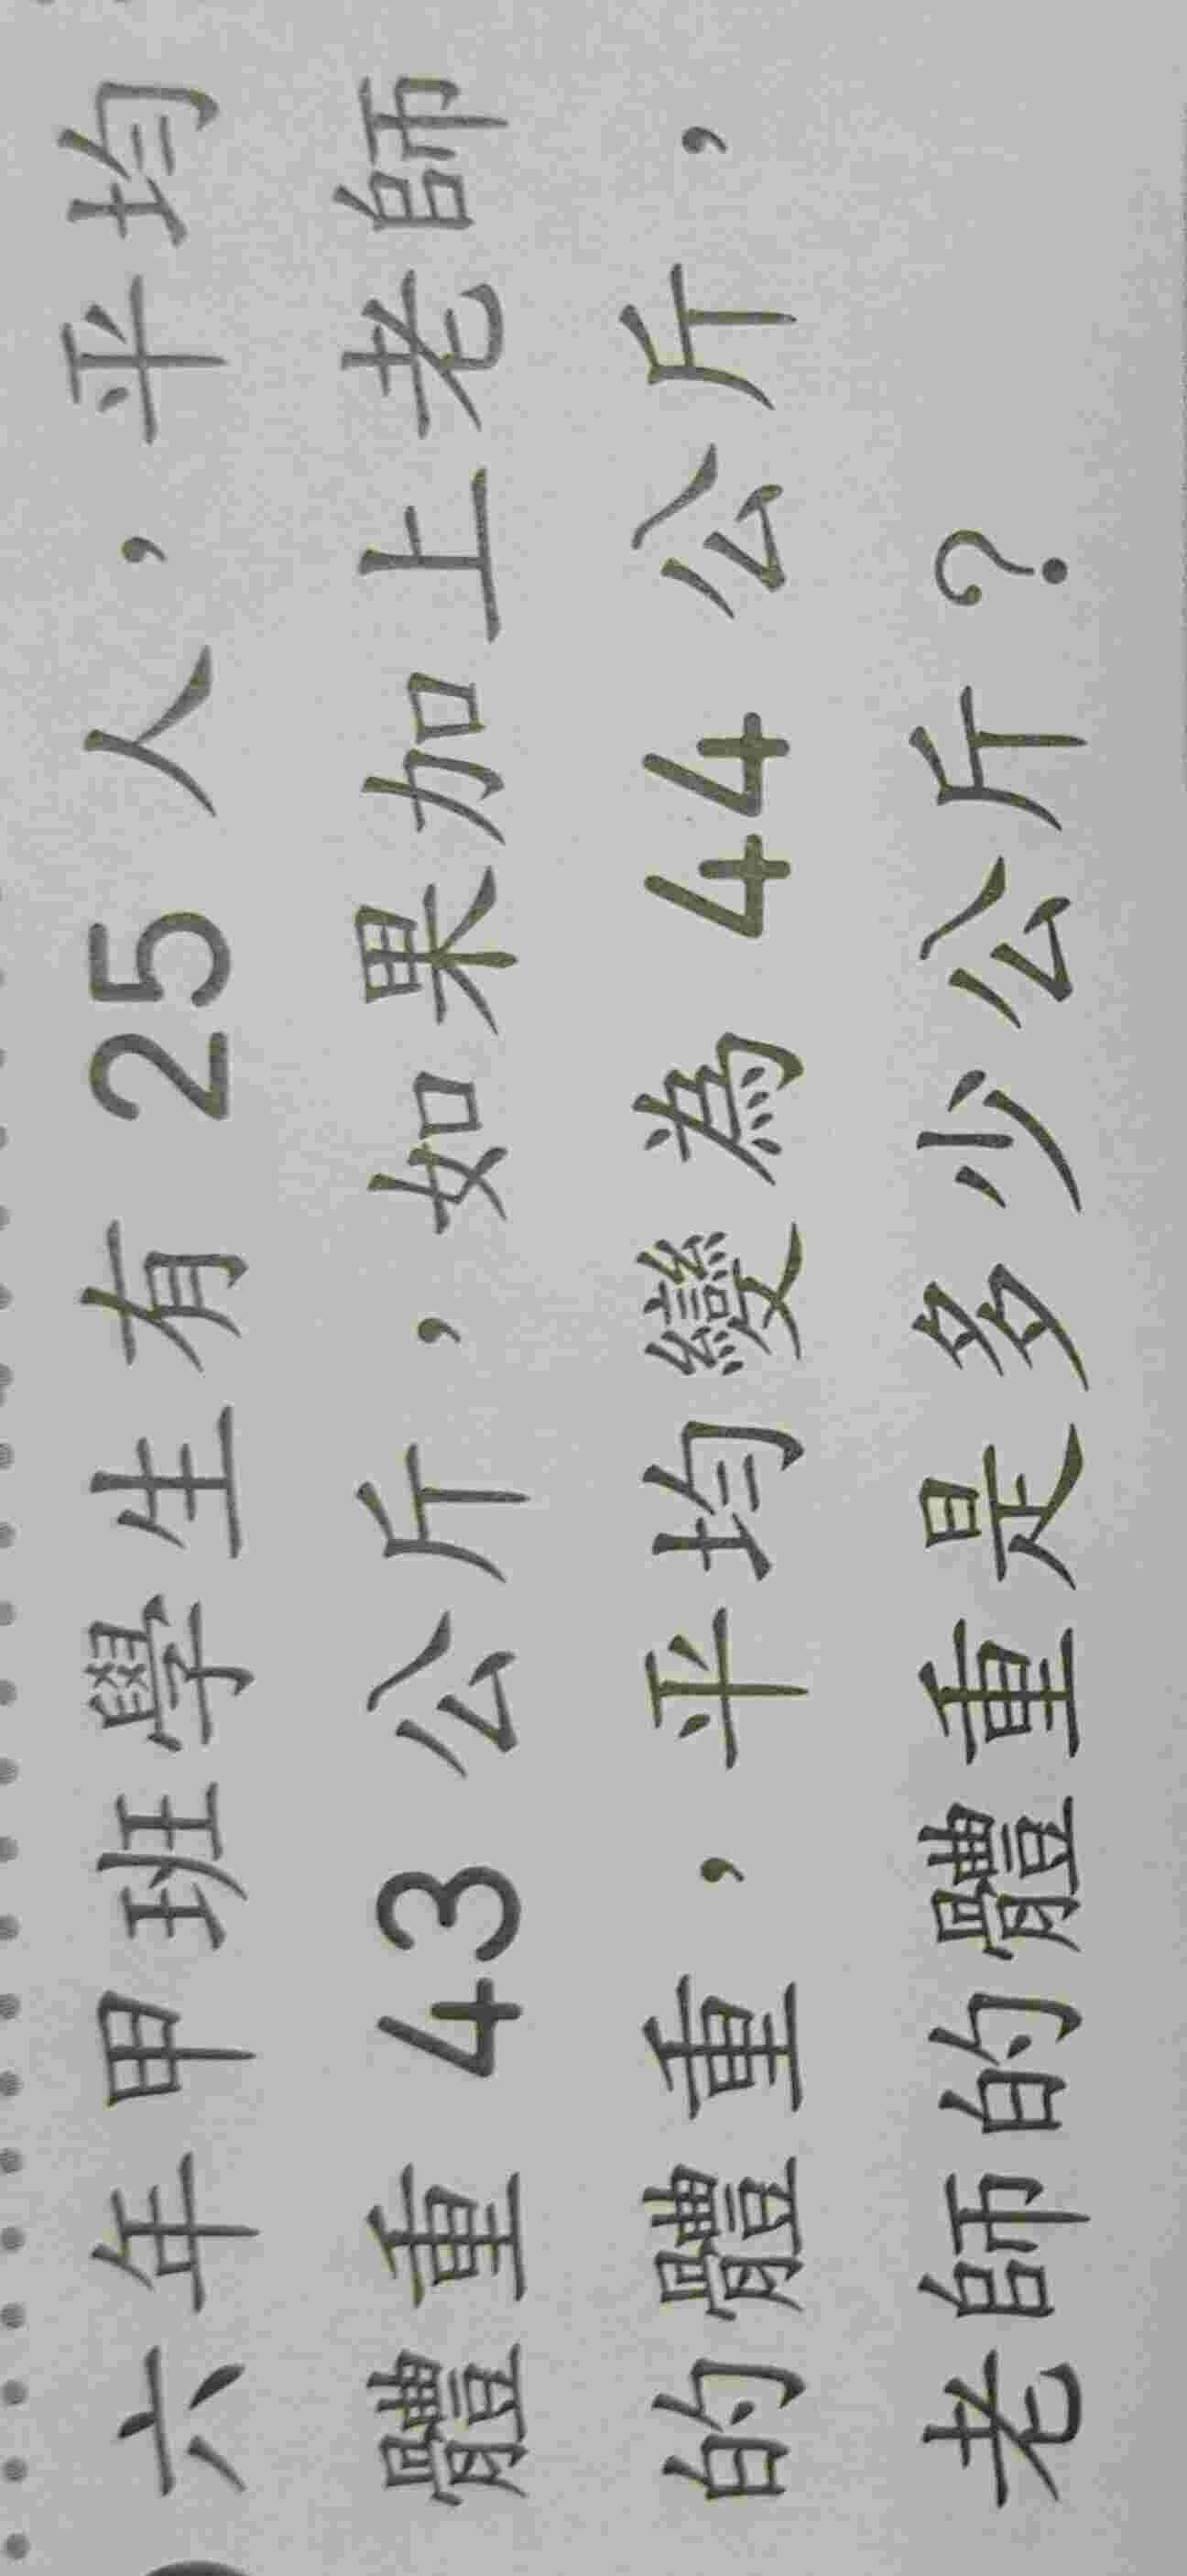 六年甲班學生有 25 人，平均
體重 43 公斤，如果加上老師
的體重，平均變為 44 公斤，
老師的體重是多少公斤？